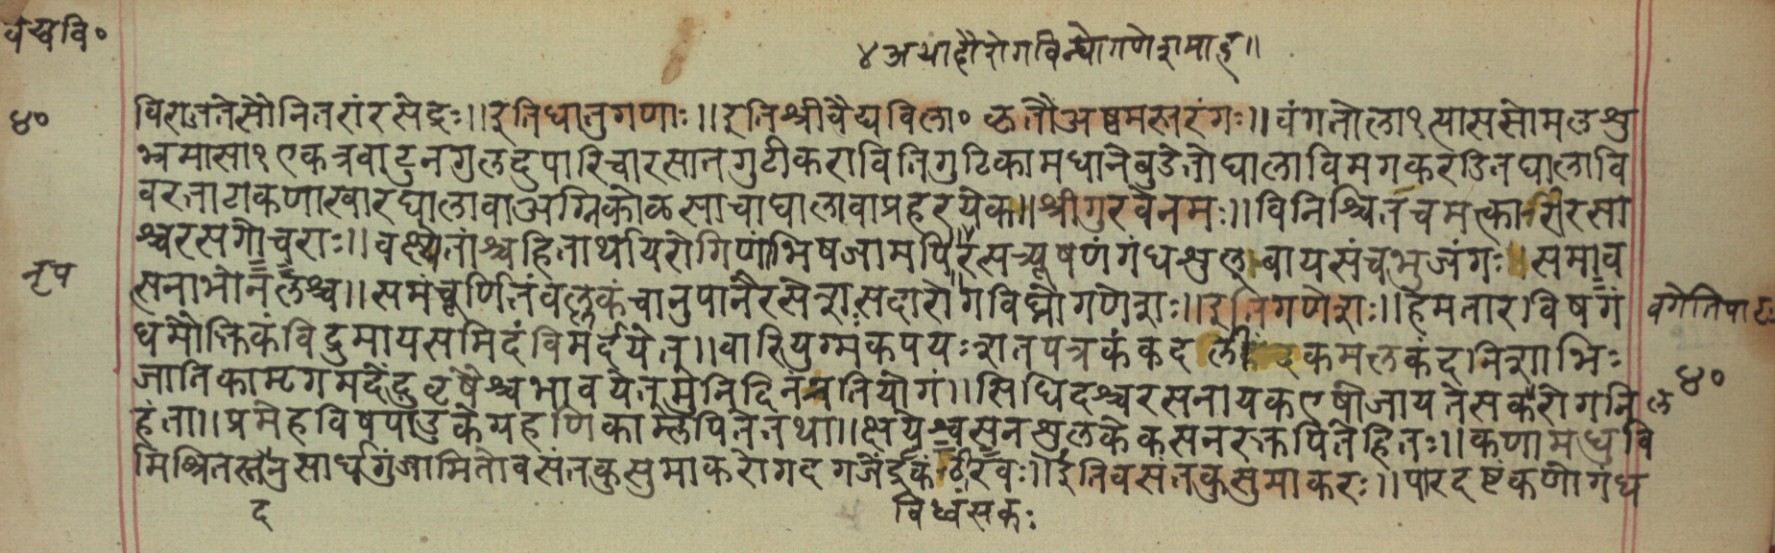 वैद्यवि॰
४ अथाहौ रोगविघ्नो गणेशमाह॥
४०
विराजतेसौनितरांरसेंद्रः॥इतिधातुगणाः॥इतिश्रीवैद्यविला॰कृतौअष्टमस्तरंगः॥वंगतोला१त्याससोमलशु
भ्रमासा१एकत्रवाटुन पारिचारसानगुटीकरावितिगुटिकामधानेबुडेतोघालाविमगकरंडितघालावि
वरजागाकणाखारघालावाअग्निकोळसाचाघालावाप्रहरयेक॥श्रीगुरवेनमः॥विनिश्चितंचमत्कारीरसा
श्चरसगोचराः॥वक्ष्येतांश्चहितार्थायरोगिणांभिषजामपि॥रसत्र्यूषणंगंध भुजंगः॥समाव
नृप
सनाभोनलश्च॥समंचूर्णितंवल्लकंचानुपानैरसेशसदारोगविघ्नोगणेशः॥इतिगणेशः॥हेमतारविषगं
वगेतिपाठः
धमौक्तिकंविद्रुमायसमिदंविमर्दयेत्॥वारियुग्मकपयःशतपत्रकंकदली कमलकंदनिशाभिः
जातिकामृगमदेंदुवृषैश्चभावयेत्मुनिदिनं ॥सिधिदश्चरसनायकएषोजायतेसकलरोगनि
४०
हंता॥प्रमेहविषपांडुकेग्रहणिकाम्लपितेतथा॥क्षयेश्वसनशुलकेकसनरक्तपितेहितः॥कणामधुवि
मिश्रितस्तनुसार्धगुंजामितोवसंतकुसुमाकरोगदगजेंद्रकंठीरवः॥इतिवसंतकुसुमाकरः॥पारदटंकणोगंध
द
विध्वंसकः